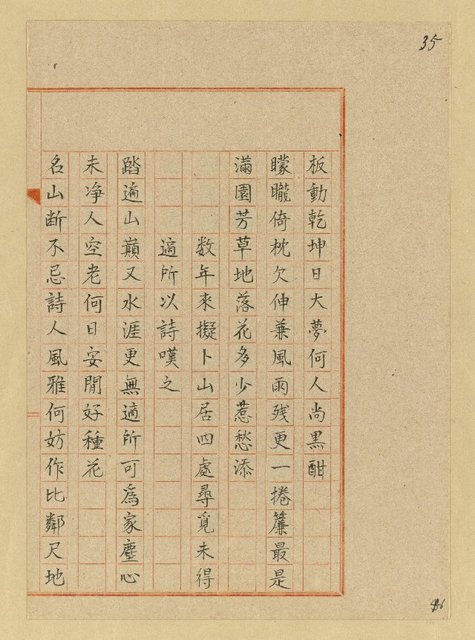 35
板動乾坤日大夢何人尚黑酣
矇矓倚枕欠伸兼風雨残更一捲簾最是
滿園芳草地落花多少惹愁添
数年來擬卜山居四處尋覓未得
適所以詩嘆之
踏遍山巔又水涯更無適所可為家塵心
未净人空老何日安閒好種花
名山断不忌詩人風雅何妨作比鄰尺地